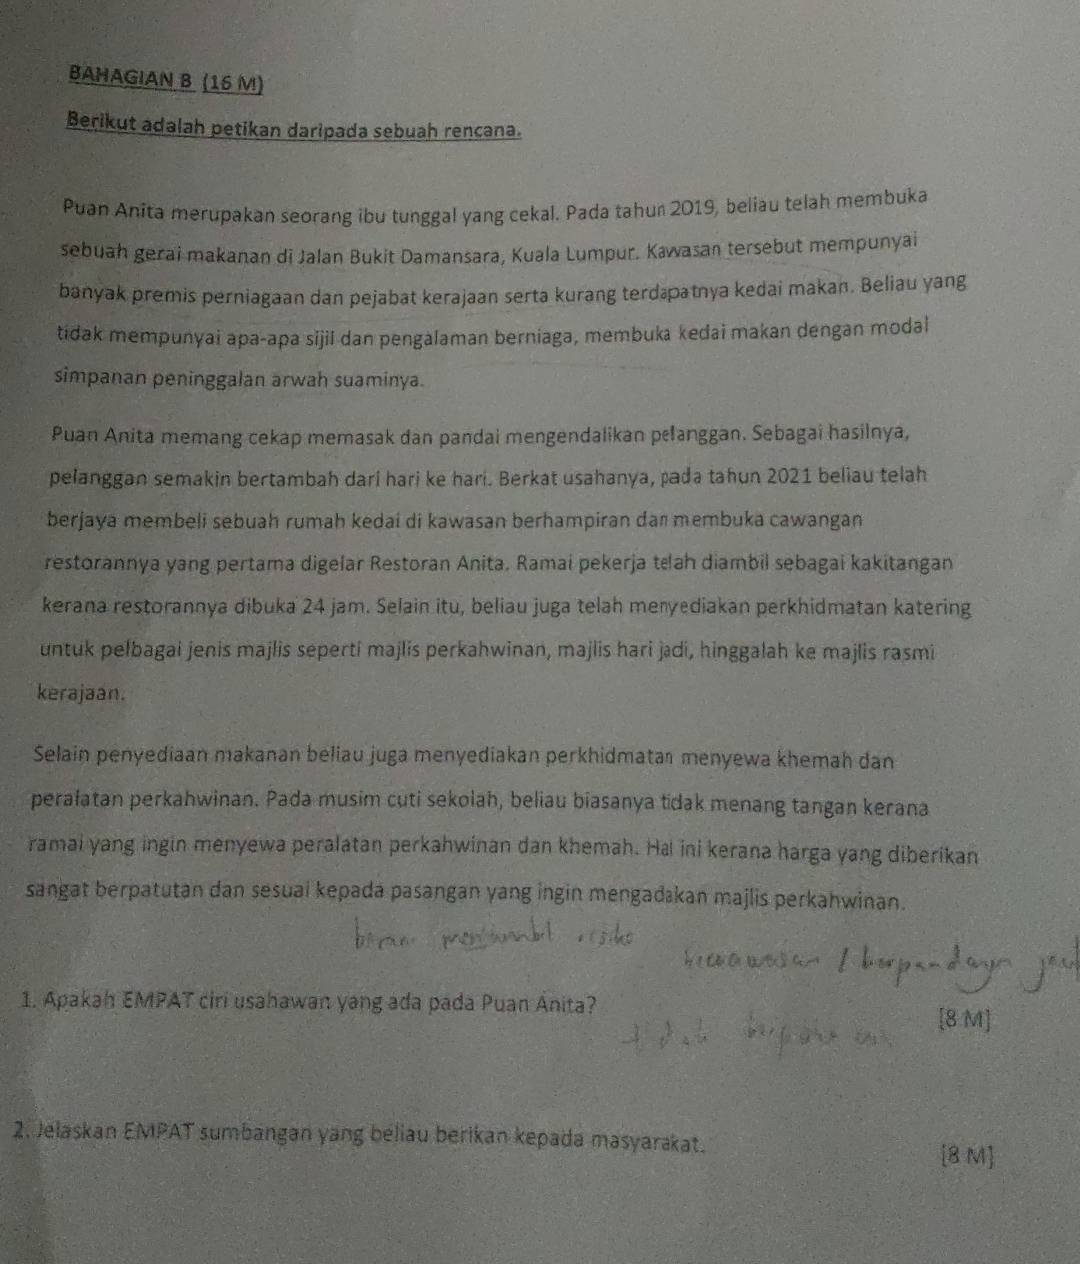 BAHAGIAN B (16 M)
Berikut adalah petikan daripada sebuah rencana.
Puan Anita merupakan seorang ibu tunggal yang cekal. Pada tahun 2019, beliau telah membuka
sebuah gerai makanan di Jalan Bukit Damansara, Kuala Lumpur. Kawasan tersebut mempunyai
banyak premis perniagaan dan pejabat kerajaan serta kurang terdapatnya kedai makan. Beliau yang
tidak mempunyai apa-apa sijil dan pengalaman berniaga, membuka kedai makan dengan modal
simpanan peninggalan arwah suaminya.
Puan Anita memang cekap memasak dan pandai mengendalikan pelanggan. Sebagai hasilnya,
pelanggan semakin bertambah dari hari ke hari. Berkat usahanya, pada tahun 2021 beliau telah
berjaya membeli sebuah rumah kedai di kawasan berhampiran dan membuka cawangan
restorannya yang pertama digelar Restoran Anita. Ramai pekerja telah diambil sebagai kakitangan
kerana restorannya dibuka 24 jam. Selain itu, beliau juga telah menyediakan perkhidmatan katering
untuk pelbagai jenis majlis seperti majlis perkahwinan, majlis hari jadi, hinggalah ke majlis rasmi
kerajaan.
Selain penyediaan makanan beliau juga menyediakan perkhidmatan menyewa khemah dan
peralatan perkahwinan. Pada musim cuti sekolah, beliau biasanya tidak menang tangan kerana
ramai yang ingin menyewa peralatan perkahwinan dan khemah. Hal ini kerana harga yang diberikan
sangat berpatutan dan sesuai kepada pasangan yang ingin mengadakan majlis perkahwinan.
risiko
/ berpandangan
1. Apakah EMPAT ciri usahawan yang ada pada Puan Anita?
[8 M]
2. Jelaskan EMPAT sumbangan yang beliau berikan kepada masyarakat.
[8 M]